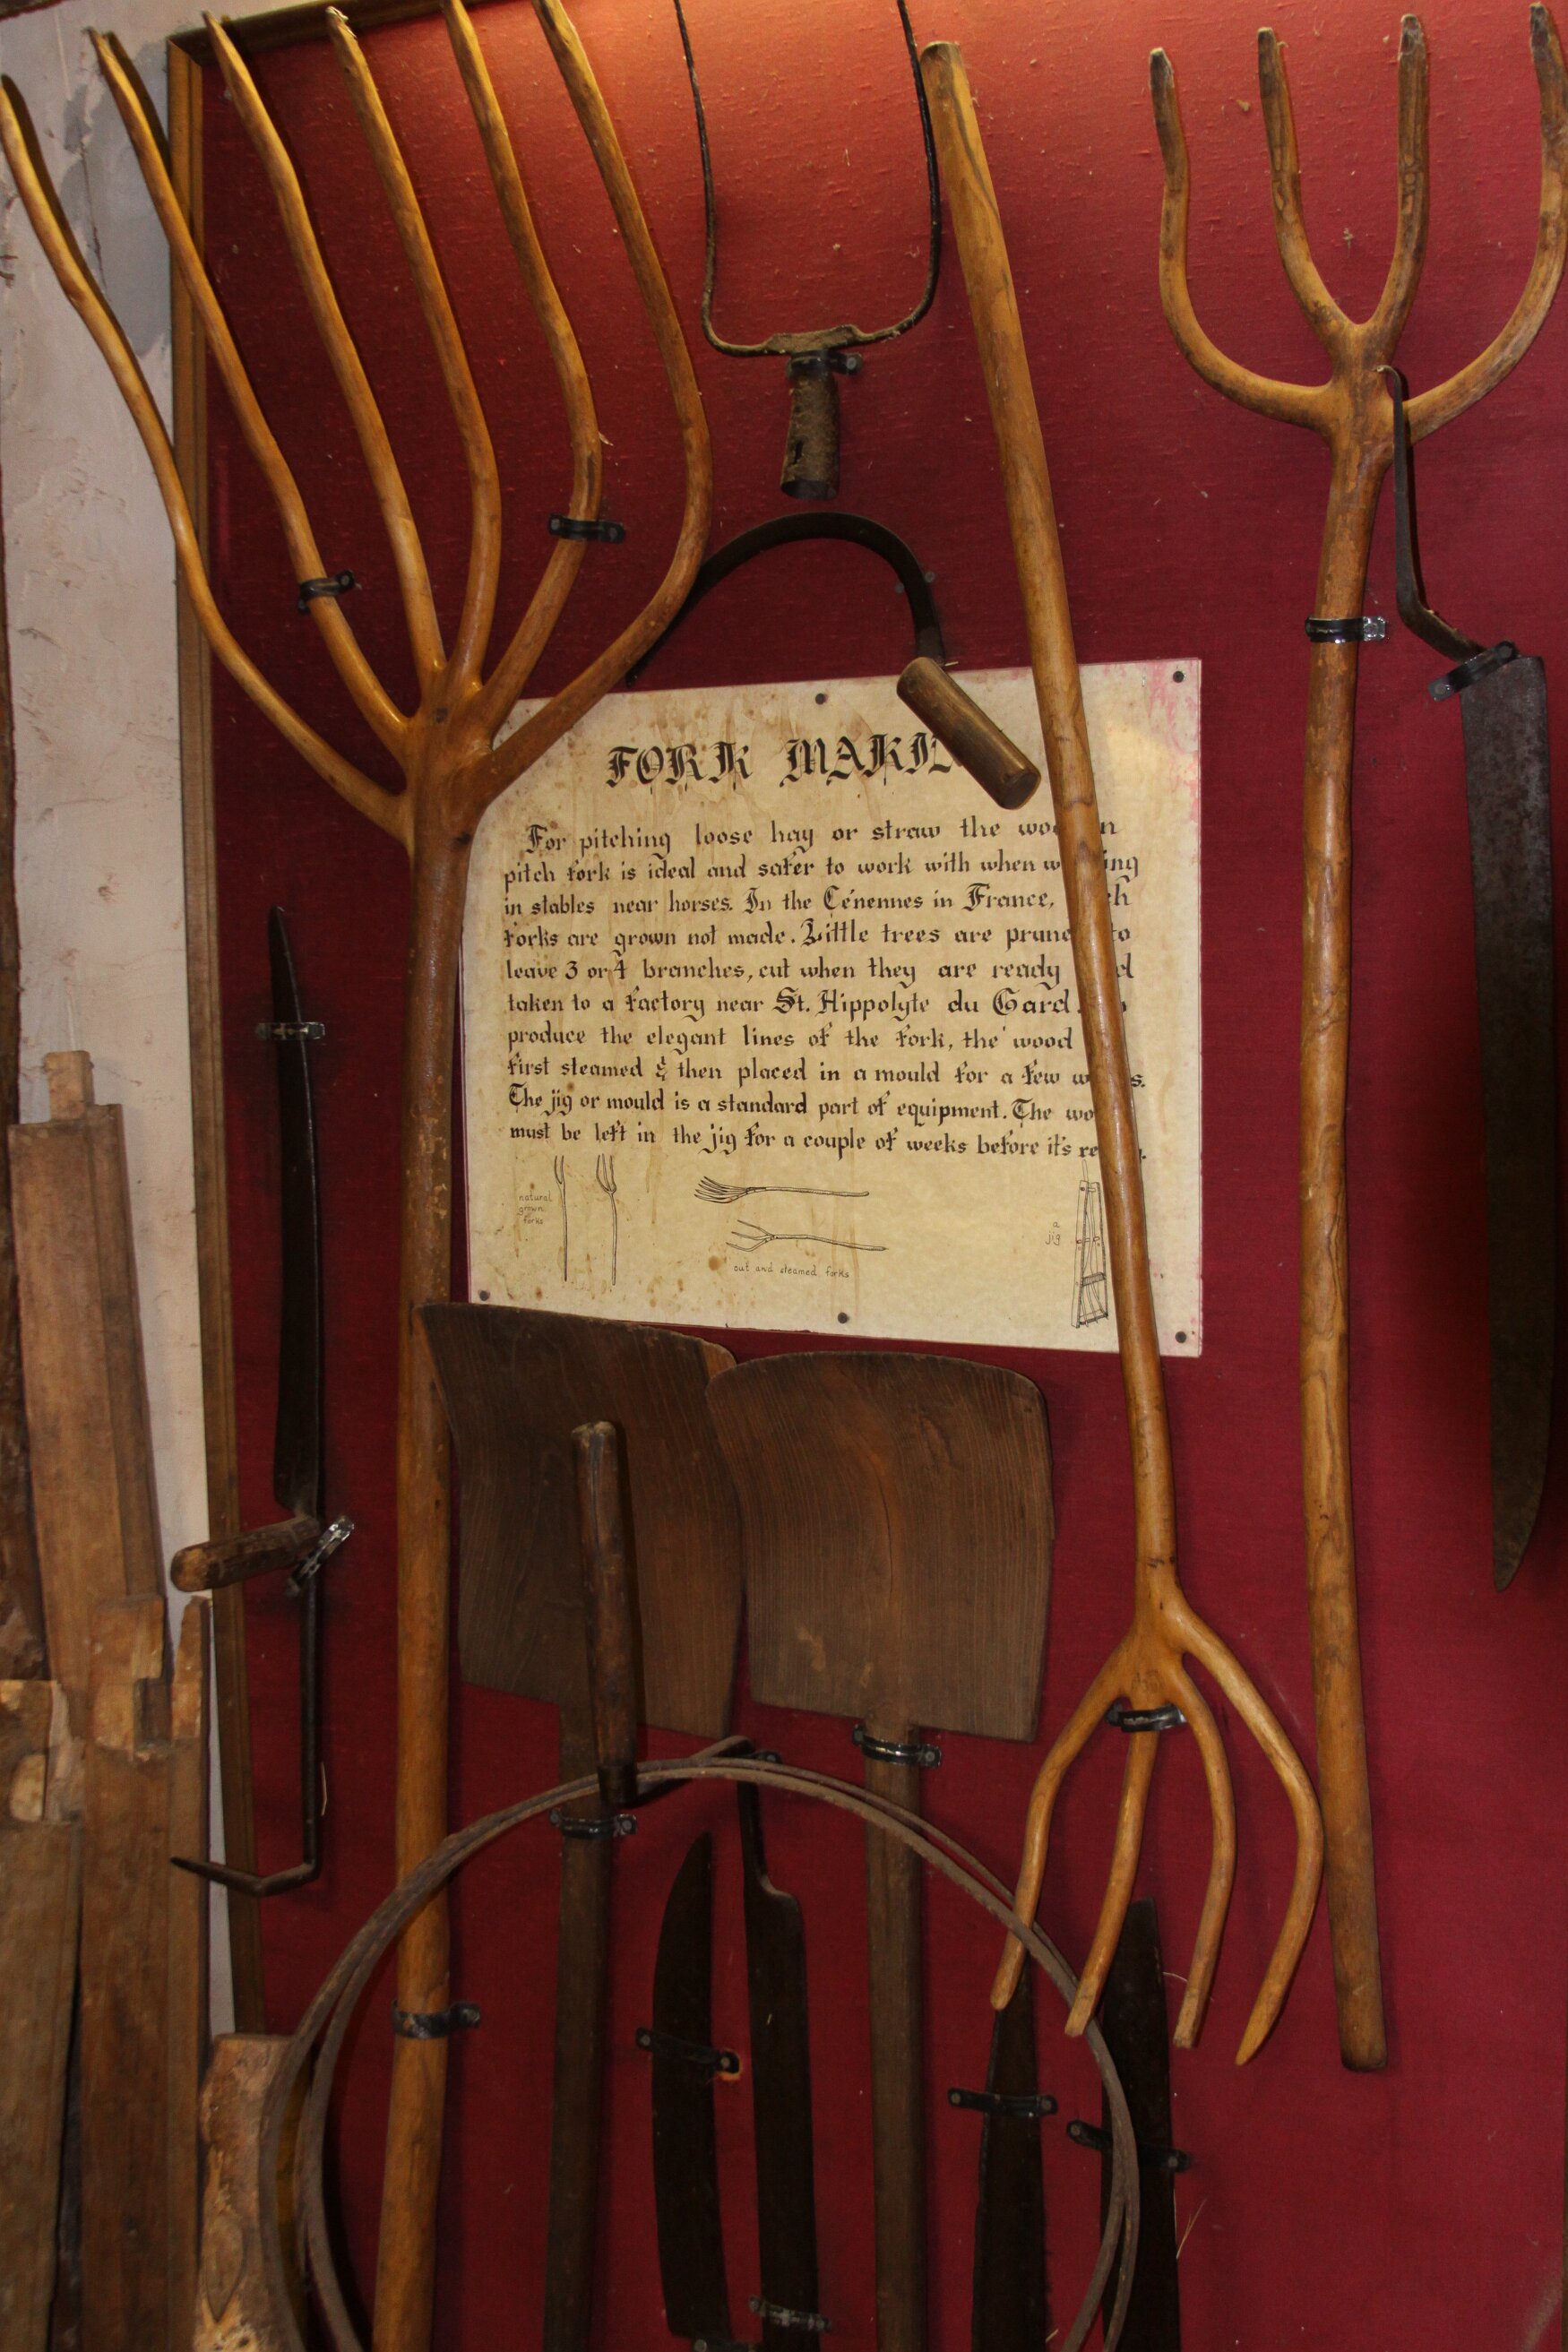 FORK MAKIN
For pitching loose hay or straw the woo n
pitch fork is ideal and safer to work with when w ing
in stables near horses. In the Cénennes in France, h
forks are grown not made. Little trees are prune to
leave 3 or 4 branches, cut when they are ready d
taken to a factory near St. Hippolyte du Gard.
produce the elegant lines of the fork, the wood
first steamed & then placed in a mould for a few w s.
The jig or mould is a standard part of equipment. The wo
must be left in the jig for a couple of weeks before it's re .
natural
grown
forks
cut and steamed forks
a
jig